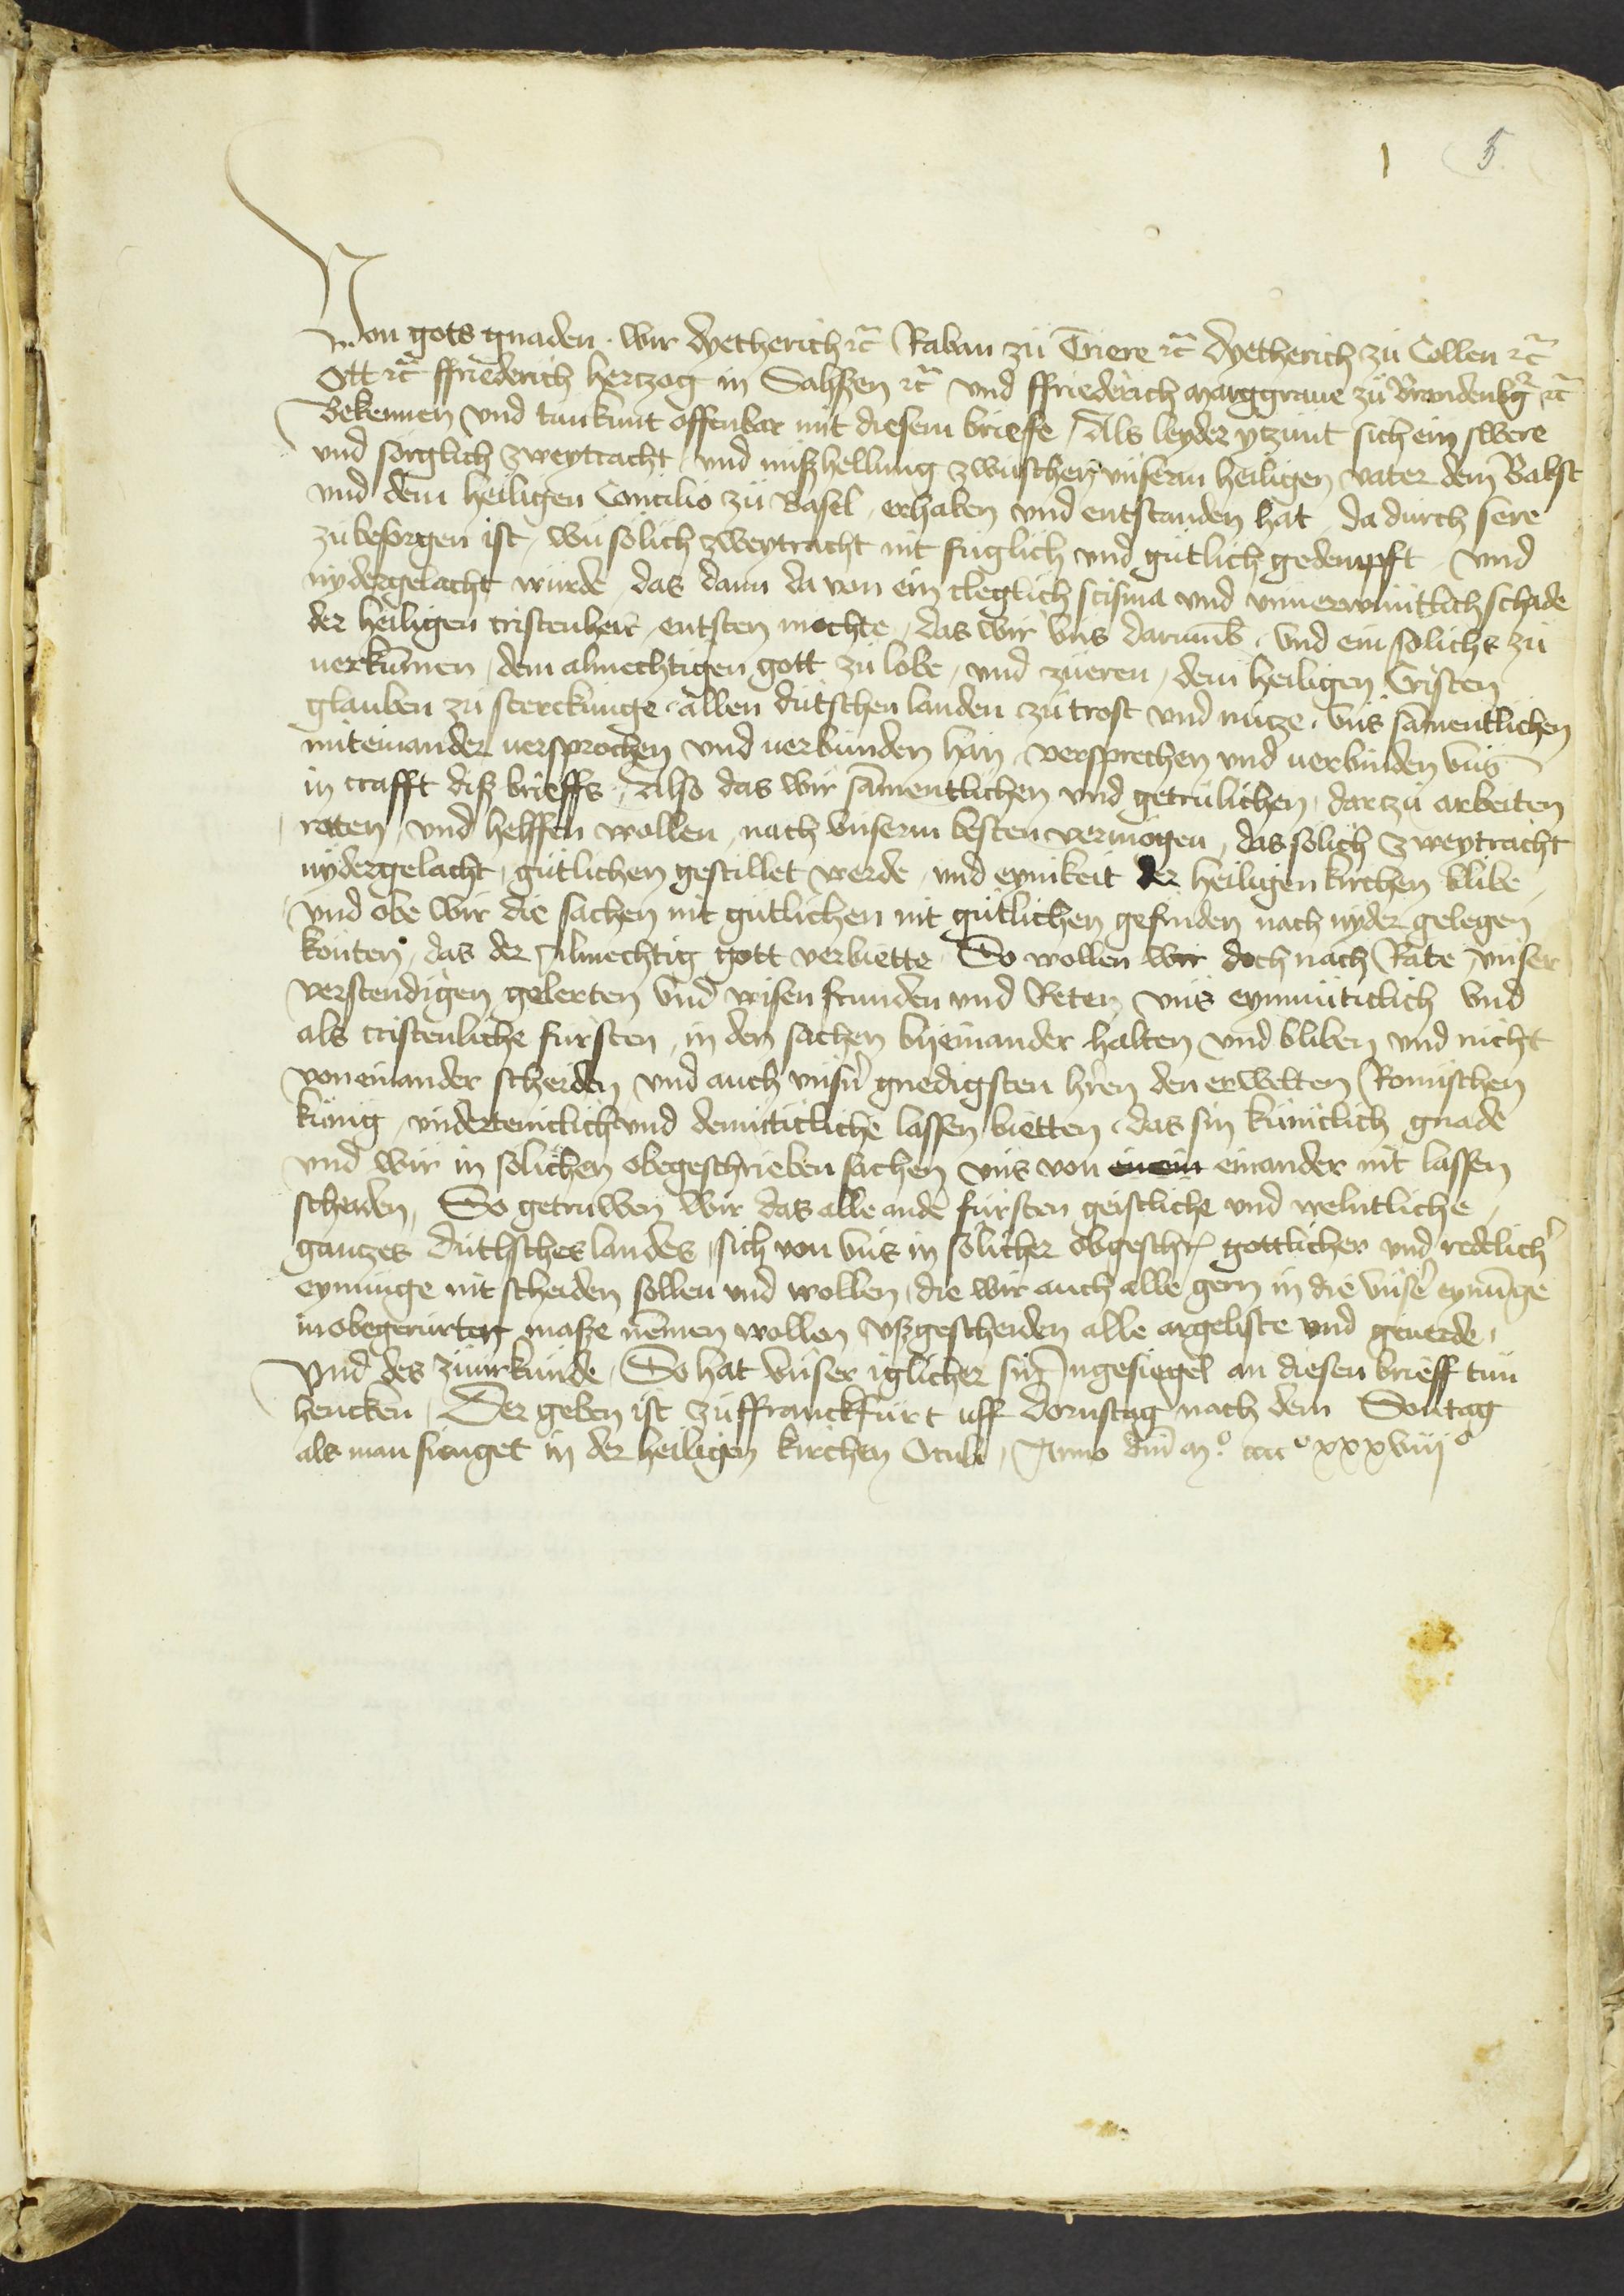 1 5
Von gots gnaden. wir dyetherich ꝛc̃ Raban zü Triere ꝛc̃ dyetherich zü Collen ꝛc̃
Ott ꝛc̃ ffriederich hertzog in Sahßen ꝛc̃ vnd ffriederich marggraue zü Brandenbg̃ ꝛc̃
Bekennen vnd tün kunt offenbar mit diesem briefe / Als leyder ytzünt sich ein swere
vnd sorglich zweytracht vnd mißhellung zwüschen vnserm heiligen vater dem Babst
vnd dem heiligen Concilio zü Basel, erhaben vnd entstanden hat, da dürch sere
zü besorgen ist, wü solich zweytracht nit füglich vnd gütlich gedempfft, vnd
nydergelacht würde, das dann da von ein cleglich scisma vnd vnuerwintlich schade
der heiligen cristenheit, entsten mochte, das wir vns darum̄b, vnd ein solichs zü
uerkümen, dem almechtigen gott zü lobe, vnd zü eren, dem heiligen Cristen
glauben zü sterckünge, allen dütschen landen zü trost vnd nütze, vns samentlichen
miteinander uersprochen vnd uerbünden han, versprechen vnd uerbinden vns
in crafft diß brieffs, Also das wir samentlichen vnd getrülichen, dartzü arbeiten
raten, vnd helffen wollen, nach vnserm besten vermögen, das solich zweytracht
nydergelacht, gütlichen gestillet werde, vnd eynikeit der heiligen kirchen blibe,
vnd obe wir die sachen nit gütlichen nit gütlichen gefinden nach nyder gelegen
könten, das der Almechtig gott verbiette, So wollen wir doch nach Rate vnser
verstendigen gelerten vnd wisen frunden vnd Reten, vns eynmüticlich vnd
als cristenliche fürsten, in den sachen byeinander halten vnd bliben vnd nicht
voneinander scheiden vnd auch vnsn̄ gnedigsten hr̄en den erwelten Romischen
künig, vnderteniclich vnd demüticliche lassen bietten, das sin küniclich gnade
vnd wir in solichen obegeschrieben sachen vns von einein einander nit lassen
scheiden, So getruwen wir das alle ande fürsten geistliche vnd weltliche,
gantzes düthsches landes, sich von vns in solicher obgeschr̄ gottlicher vnd redelich̄
eynunge nit scheiden sollen vnd wollen, die wir auch alle gern in die vnse eynūge
in obegerürten maße nemen wollen vßgescheiden alle argeliste vnd geuerde,
Vnd des zü vrkünde, So hat vnser iglicher sin Ingesiegel an diesen brieff tün
hencken, Der geben ist zü ffranckfürt uff dornstag nach dem Sontag
als man singet in der heiligen kirchen Oculi, Anno dm̄ mᵒ. ccccᵒ xxxviijᵒ